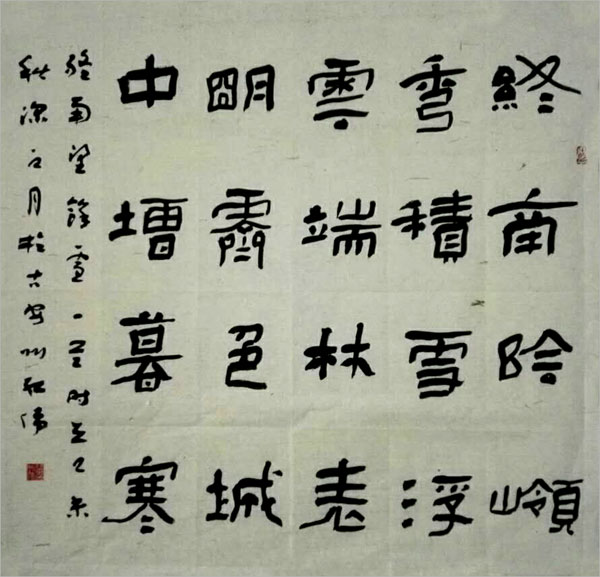 終南陰嶺
秀積雪浮
雲端林表
明霽色城
中增暮寒
終南望餘雪一首時在乙未
秋深之月於古安州